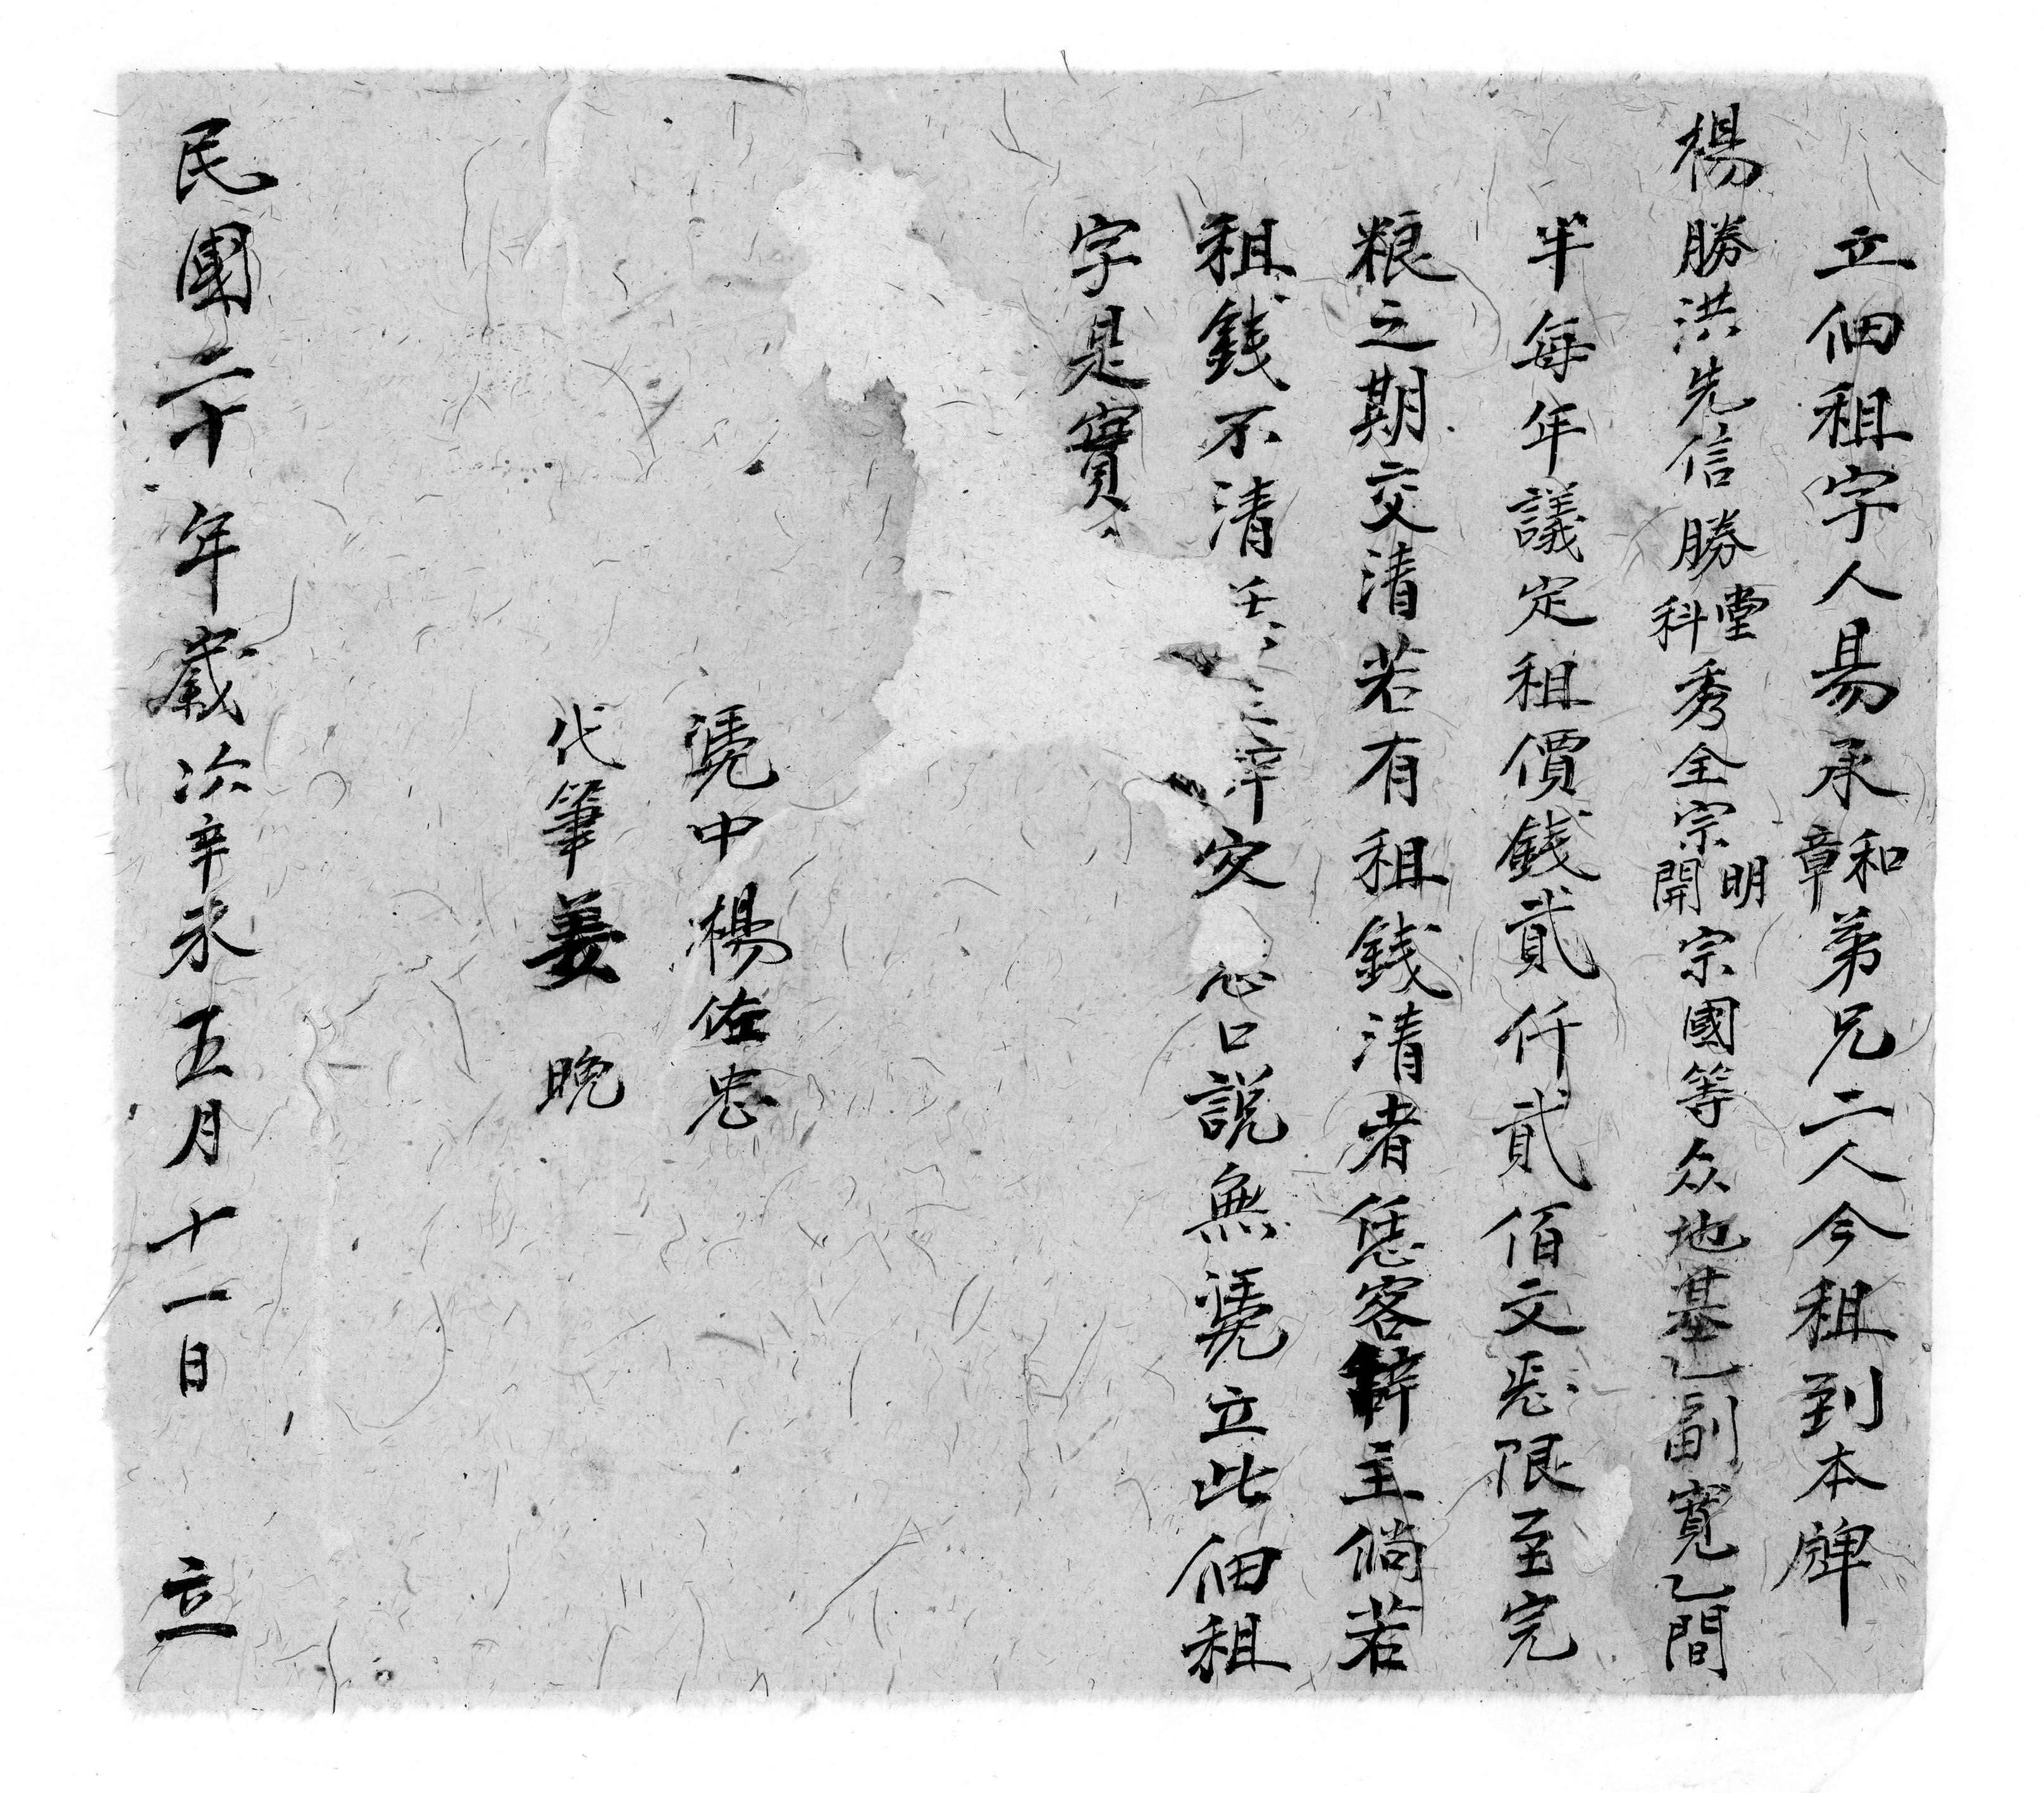 立佃租字人易承和章弟兄二人今租到本牌
楊勝洪先信勝堂科秀全宗明開宗國等众地基乙副寬乙間
半每年議定租價錢貳仟貳佰文限至完
粮之期交清若有租錢清者恁客辞主倘若
租錢不清 心口説無凴立此佃租
字是實
凴中楊佐忠
代筆姜晚
民國二十年歲次辛未五月十一日立